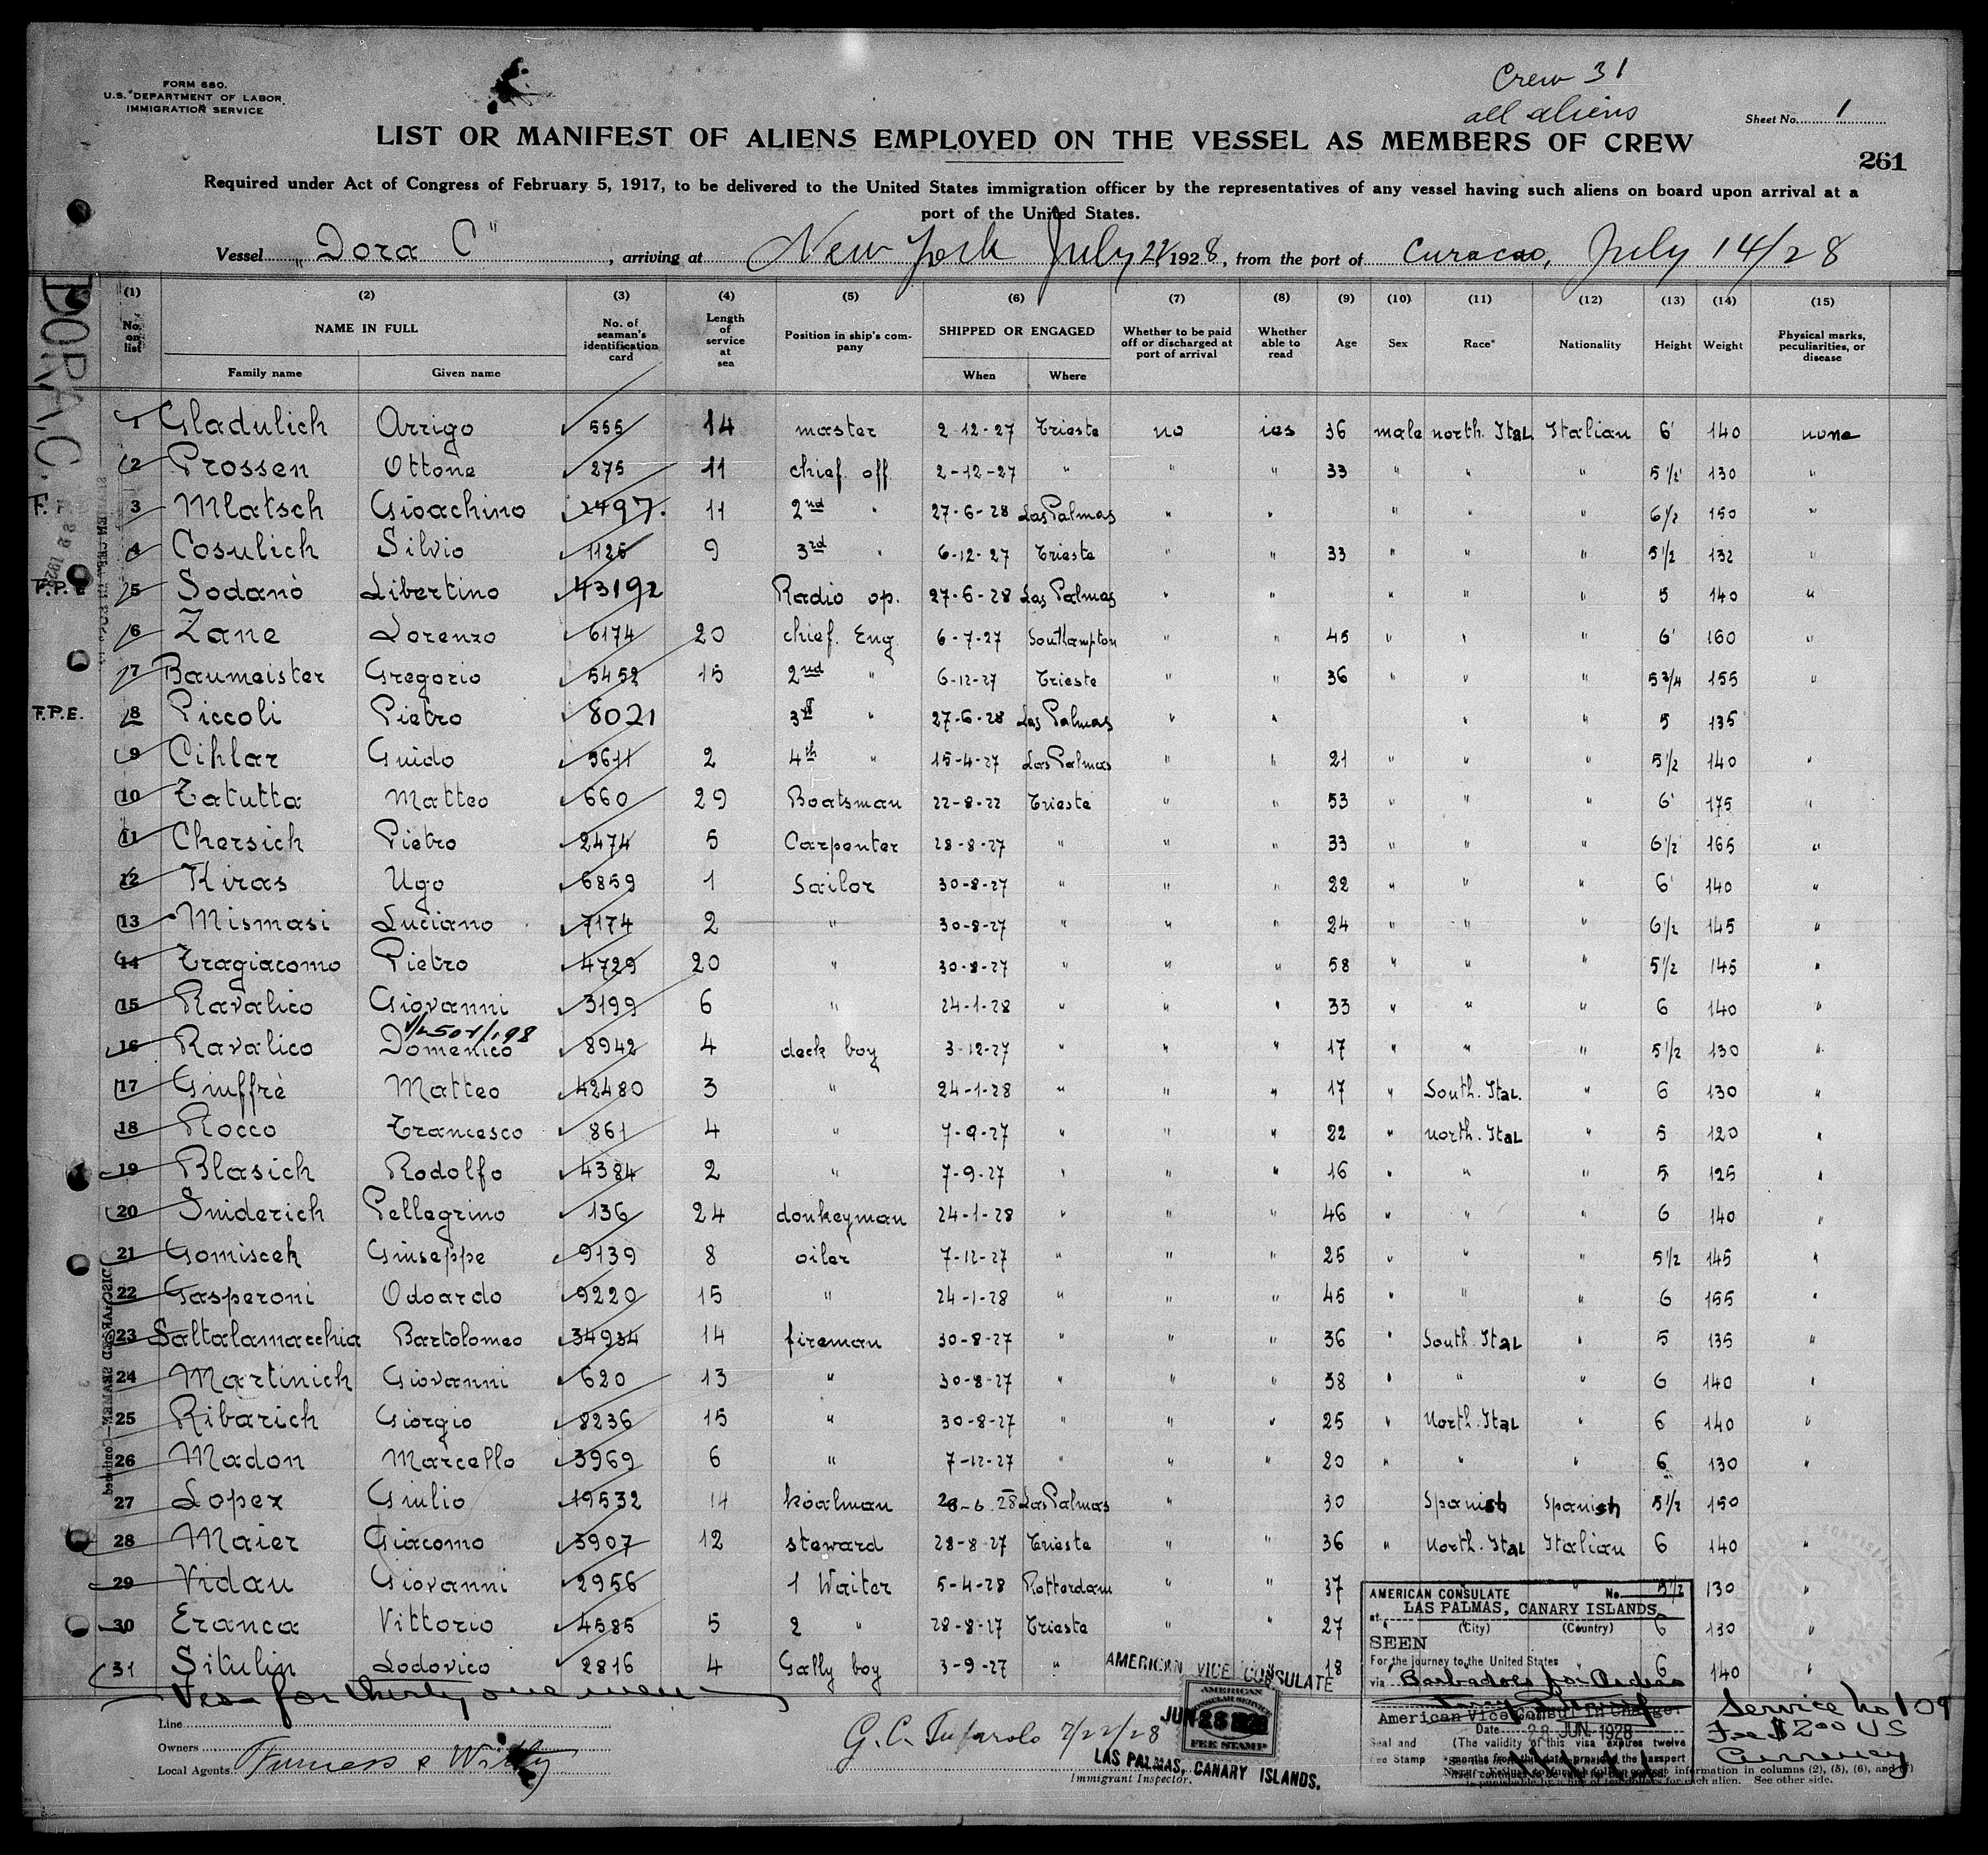 FORM 680.
U.S. DEPARTMENT OF LABOR
IMMIGRATION SERVICE
Crew 31
all aliens
Sheet No. 1
LIST OR MANIFEST OF ALIENS EMPLOYED ON THE VESSEL AS MEMBERS OF CREW
261
Required under Act of Congress of February 5, 1917, to be delivered to the United States immigration officer by the representatives of any vessel having such aliens on board upon arrival at a
port of the United States.
Vessel "Dora C", arriving at New York July 22, 1928, from the port of Curacao, July 14/28
DORA C.
(1) (2) (3) (4) (5) (6) (7) (8) (9) (10) (11) (12) (13) (14) (15)
No. on list NAME IN FULL No. of seaman's identification card Length of service at sea Position in ship's company SHIPPED OR ENGAGED Whether to be paid off or discharged at port of arrival Whether able to read Age Sex Race* Nationality Height Weight Physical marks, peculiarities, or disease
Family name Given name When Where
1 Gladulich Arrigo 555 14 master 2-12-27 Trieste no ies 36 male north. Ital Italian 6' 140 none
2 Prossen Ottone 275 11 chief off 2-12-27 " " " 33 " " " 5 1/2 130 "
F. 3 Mlatsch Gioachino 2497. 11 2nd " 27-6-28 Las Palmas " " " " " 6 1/2 150 "
4 Cosulich Silvio 1126 9 3rd " 6-12-27 Trieste " " 33 " " " 5 1/2 132 "
F.P.E 5 Sodanò Libertino 43192 Radio op. 27-6-28 Las Palmas " " " " " 5 140 "
6 Zane Lorenzo 6174 20 chief. Eng 6-7-27 Southampton " " 45 " " " 6' 160 "
7 Baumeister Gregorio 5452 15 2nd " 6-12-27 Trieste " " 36 " " " 5 3/4 155 "
F.P.E. 8 Piccoli Pietro 8021 3rd " 27-6-28 Las Palmas " " " " 5 135
9 Cihlar Guido 9611 2 4th " 15-4-27 Las Palmas " " 21 " " " 5 1/2 140 "
10 Tatutta Matteo 660 29 Boatsman 22-8-22 Trieste " " 53 " " " 6' 175 "
11 Chersich Pietro 2474 5 Carpenter 28-8-27 " " " 33 " " " 6 1/2 165 "
12 Kiras Ugo 6859 1 Sailor 30-8-27 " " " 22 " " " 6' 140 "
13 Mismasi Luciano 7174 2 " 30-8-27 " " " 24 " " " 6 1/2 145 "
14 Tragiacomo Pietro 4729 20 " 30-8-27 " " " 58 " " " 5 1/2 145 "
15 Ravalico Giovanni 3199 6 " 24-1-28 " " " 33 " " " 6 140 "
16 Ravalico Domenico 8942 4 deck boy 3-12-27 " " " 17 " " " 5 1/2 130 "
17 Giuffrè Matteo 42480 3 " 24-1-28 " " " 17 " South. Ital. " 6 130 "
18 Rocco Francesco 861 4 " 7-9-27 " " " 22 " north. Ital " 5 120 "
19 Blasich Rodolfo 4384 2 " 7-9-27 " " " 16 " " " 5 125 "
20 Sniderich Pellegrino 136 24 donkeyman 24-1-28 " " " 46 " " " 6 140 "
21 Gomiscek Giuseppe 9139 8 oiler 7-12-27 " " " 25 " " " 5 1/2 145 "
22 Gasperoni Odoardo 9220 15 " 24-1-28 " " " 45 " " " 6 155 "
23 Saltalamacchia Bartolomeo 34934 14 fireman 30-8-27 " " " 36 " South. Ital " 5 135 "
24 Martinich Giovanni 620 13 " 30-8-27 " " " 38 " " " 6 140 "
25 Ribarich Giorgio 8236 15 " 30-8-27 " " " 25 " North. Ital " 6 140 "
26 Madon Marcello 3969 6 " 7-12-27 " " " 20 " " " 6 130 "
27 Lopez Giulio 19532 14 koalman 28-6-28 Las Palmas " 30 Spanish Spanish 5 1/2 150
28 Maier Giacomo 3907 12 steward 28-8-27 Trieste " " 36 " North. Ital Italian 6 140 "
29 Vidau Giovanni 2956 1 Waiter 5-4-28 Rotterdam " " 37 " 5 1/2 130 "
30 Eranca Vittorio 4585 5 2 " 28-8-27 Trieste " " 27 6 130 "
31 Situlin Lodovico 2816 4 Gally boy 3-9-27 " 18 6 140 "
Visa for thirty one men
AMERICAN CONSULATE No.
at LAS PALMAS, CANARY ISLANDS
(City) (Country)
SEEN
For the journey to the United States
via Barbadoes for Orders
American Vice Consul in Charge.
Date 28 JUN. 1928
Seal and Fee Stamp (The validity of this visa expires twelve months from this date provided the passport itself continues to be valid for that period.
AMERICAN VICE CONSULATE
AMERICAN CONSULAR SERVICE
FEE STAMP
JUN 28 1928
LAS PALMAS, CANARY ISLANDS.
Service No 109
Fee $2.00 US
Currency
Line
Owners
Local Agents Furness & Withy
G. C. Tufarolo 7/22/28
Immigrant Inspector.
information in columns (2), (5), (6), and (7)
is punishable by a fine of ten dollars for each alien. See other side.